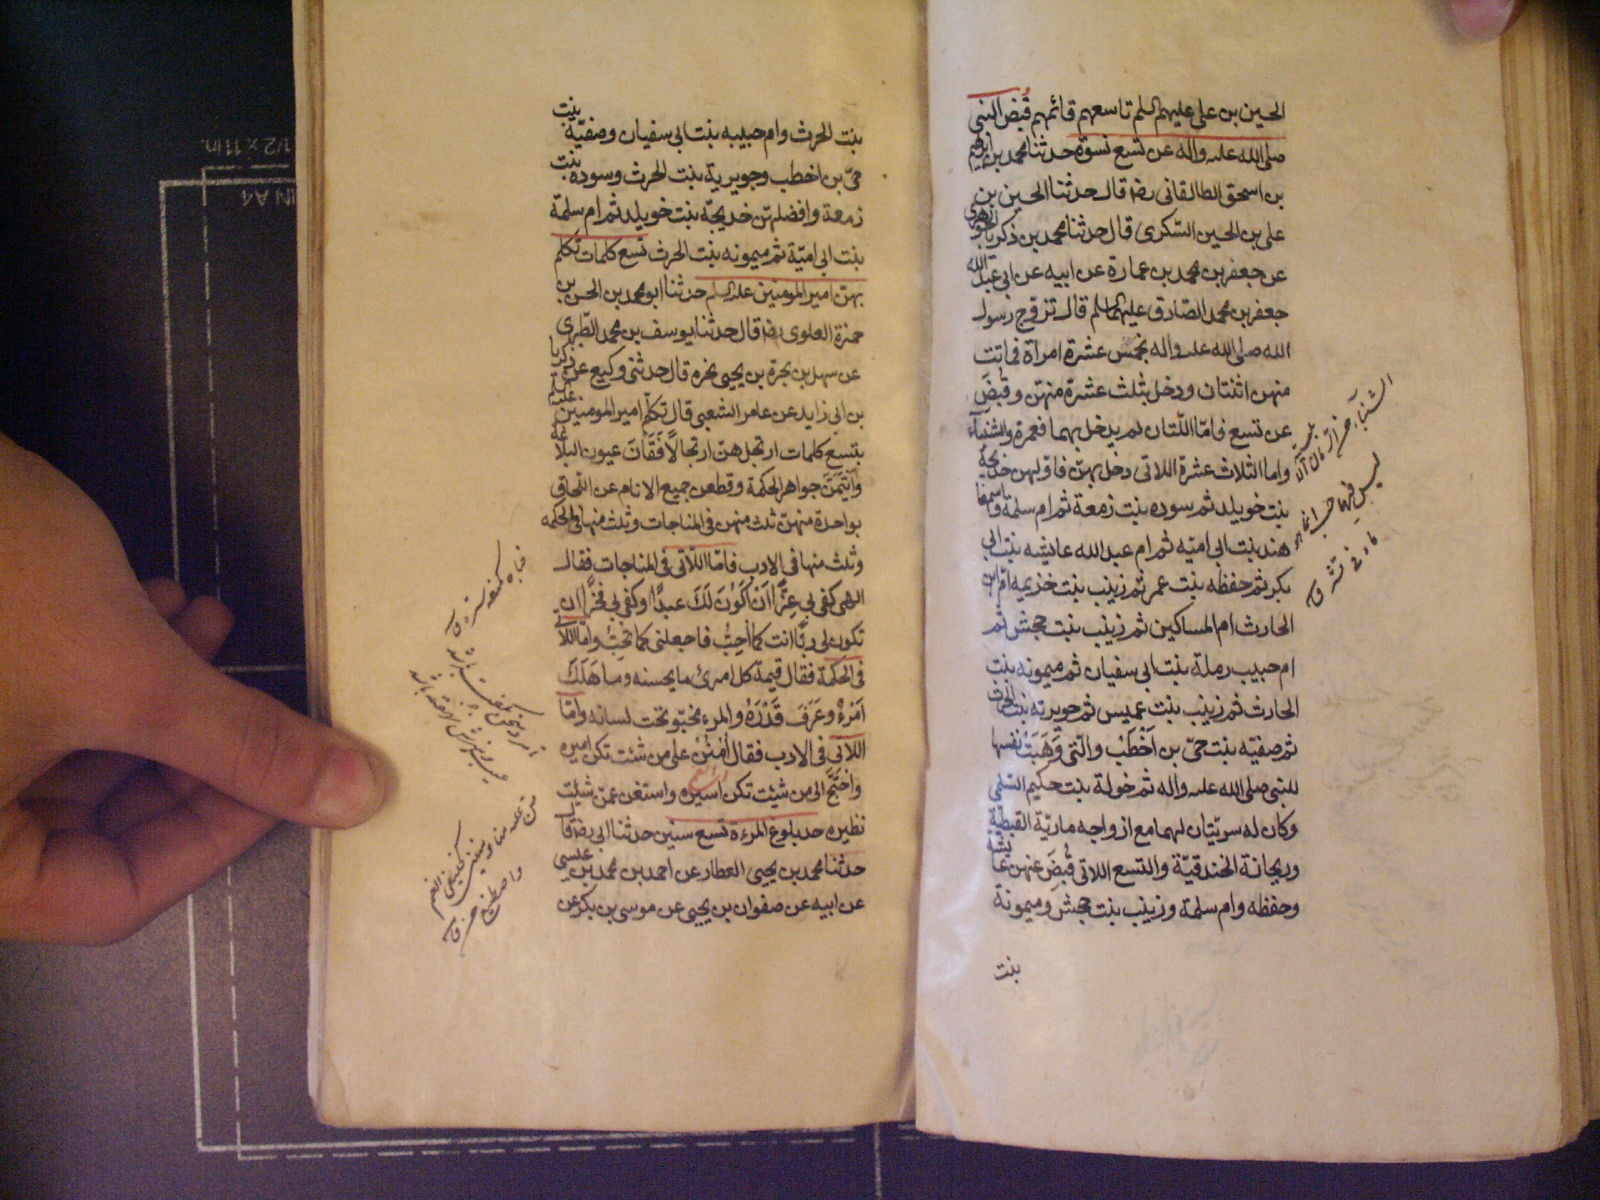 الحسين بن على عليهم السلم تاسعهم قائمهم قُبض النبى
صلى الله عليه واله عن تسع نسوة حدثنا محمد بن ابرهيم
بن اسحق الطالقانى رضه قال حدثنا الحسين بن
على بن الحسين السكرى قال حدثنا محمد بن زكريا الجوهرى
عن جعفر بن محمد بن عمارة عن ابيه عن ابى عبد الله
جعفر بن محمد الصادق عليهما السلم قال تزوج رسول
الله صلى الله عليه واله بخمس عشرة امراة فماتت
منهن اثنتان ودخل بثلث عشرة منهن وقُبضَ
عن تسع فامّا اللّتان لم يدخل بهما فعمرة والشنبآء
واما الثلاث عشرة اللاتى دخل بهنّ فاولهن خديجة
بنت خويلد ثم سوده بنت زمعة ثم ام سلمة واسمها
هند بنت ابى اميه ثم ام عبد الله عايشه بنت ابى
بكر ثم حفظه بنت عمر ثم زينب بنت خزيمه
الحارث ام المساكين ثم زينب بنت جحش ثم
ام حبيب رملة بنت ابى سفيان ثم ميمونه بنت
الحارث ثم زينب بنت عميس ثم جويرته بنت الحرث
ثم صفيّه بنت حىّ بن اَخْطَبْ والّتى وَهَبَتْ نفسها
للنبى صلى الله عليه واله ثم خولة بنت حكيم السّلمى
وكان له سريّتان لهما مع ازواجه ماريّة القبطيّة
وريحانة الخندقيّة والتسع اللاتى قُبِضَ عنهن عايشه
وحفظه وام سلمة وزينب بنت جحش وميمونة
بنت
بنت الحرث وام حبيبه بنت ابى سفيان وصفيّة بنت
حىّ بن اخطب وجويرية بنت الحرث وسوده بنت
زمعة وافضلهنّ خديجّة بنت خويلد ثم ام سلمة
بنت ابى اميّة ثم ميمونه بنت الحرث تسع كلمات تكلم
بهنّ امير المومنين عليه السلم حدثنا ابو محمد بن الحسن بن
حمزة العلوى رضه قال حدثنا يوسف بن محمد الطبرى
عن سهل بن نجرة بن يحيى نجره قال حدثنى وكيع عن زكريا
بن ابى زايد عن عامر الشعبى قال تكلّم امير المومنين عليه السلم
بتسع كلمات ارتجلهنّ ارتجالًا فَقَانَ عيون البلاغه
وايْتَمَنَ جواهر الحكمة وقطعن جميع الانام عن اللّحاق
بواحدة منهنّ ثلث منهن فى المناجات وثلث منها فى الحكمه
وثلث منها فى الادب فامّا اللّاتى فى المناجات فقال
الهى كفى لى عِزًّا اَنْ اَكُونَ لَكَ عبدًا وكفى لى فَخرًا ان
تكون لى ربًّا انت كما اُحِبُّ فاجعلنى كما تُحِبُّ وامّا اللّاتى
فى الحكمة فقال قيمة كل امرئ ما يحسنه وما هَلَكَ
اَمْرَءٌ وعَرَفَ قَدْرَهُ والمرء مخبّو تحت لسانه وامّا
اللاتى فى الادب فقال اُمْنُنْ على من شئت تكن اميره
واحتجْ الى من شيئت تكن اسيره واستغن عمن شيئت
نظيره حدّ بلوغ المرءة تسع سنين حدثنا ابى رضه قال
حدثنا محمد بن يحيى العطار عن احمد بن محمد بن عيسى
عن ابيه عن صفوان بن يحيى عن موسى بن بكر عن